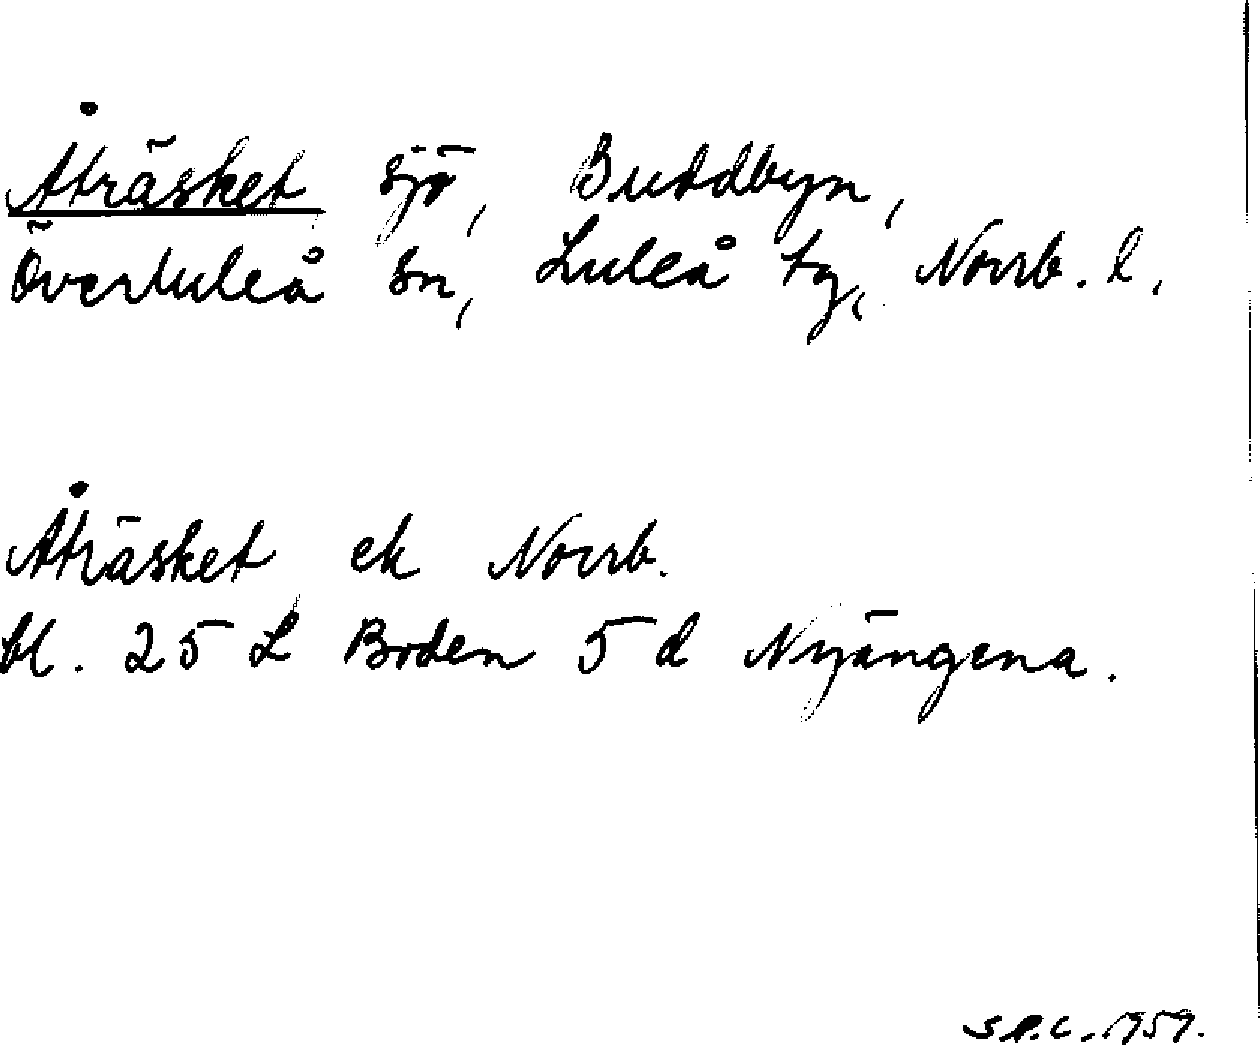 Åträsket sjö, Buddbyn,
Överluleå sn, Luleå tg, Norrb. l.
Åträsket ek Norrb.
bl. 25 L Boden 5 d Nyängena.
S.P.C. 1959.